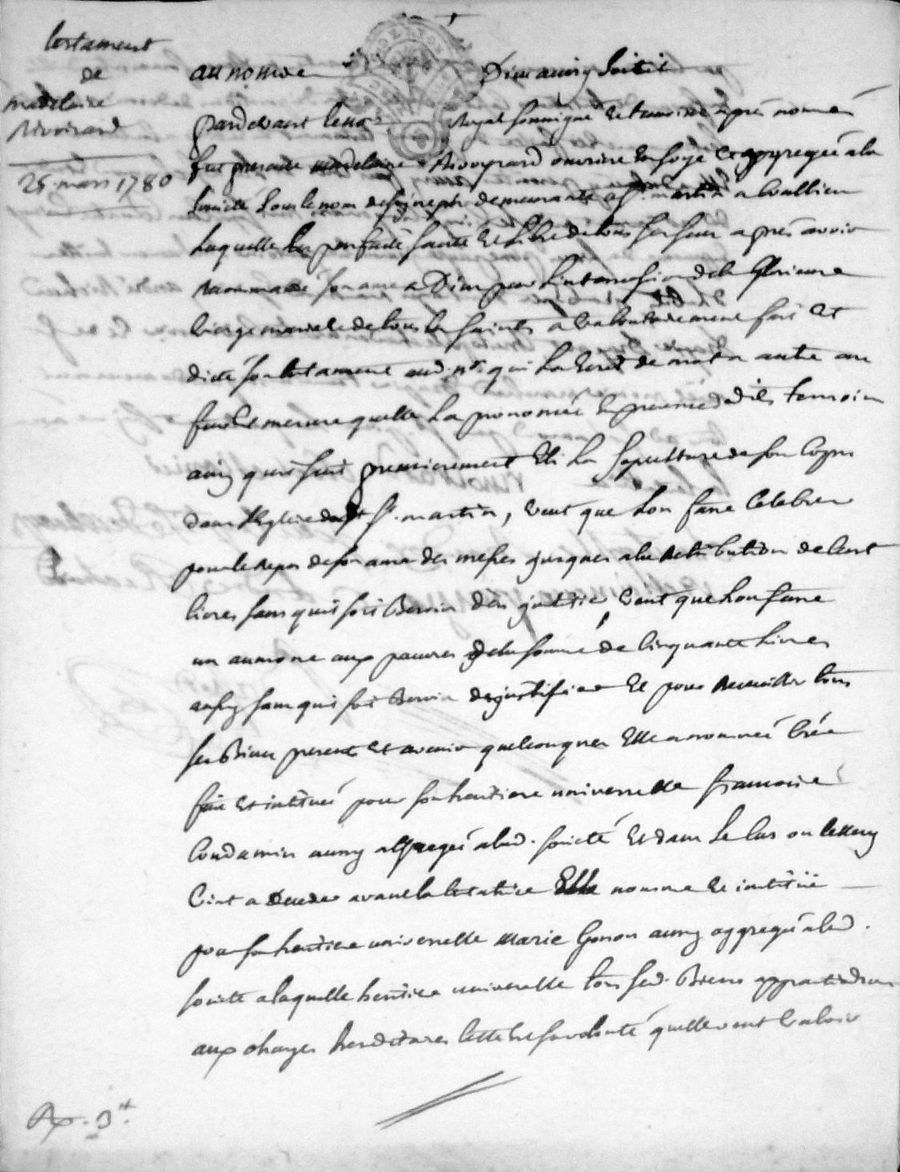 testament
de
madelaine
Rivoirard
25 mars 1780
au nom de Dieu ainsy soit il
pardevant le no.re Royal soussigné et temoins après nommés
fut presente madelaine Rivoyrard ouvriere en soye et aggregée a la
société sous le nom de st joseph demeurante a st. martin a Coallieu
laquelle en parfaite santé et libre de tous ses sens après avoir
recommandé son ame a Dieu par l'intercession de la glorieuse
vierge marie et de tous les saints a volontairement fait et
dicté son testament aud. no.re qui l'a ecrit de mot a autre au
fur et mesure quelle l'a prononcé en presence desdits temoins
ainsy quil suit premierement elit la sepulture de son corps
dans l'eglise dudt st. martin, veut que lon fasse celebrer
pour le repos de son ame des messes jusques a la retribution de cent
livres sans quil soit besoin d'en justifier, veut que lon fasse
un aumone aux pauvres de la somme de cinquante livres
aussy sans quil soit besoin de justifier et pour recueillir tous
ses biens present et avenir quelconques elle a nommée créé
fait et institué pour son heritiere universelle francoise
Condamin aussy aggregée a lad. société et dans le cas ou lesd.
vint a deceder avant la testatrice elle nomme et institüe
pour son heritiere universelle Marie Gonon aussy aggregée a lad.
société a laquelle heritiere universelle tous sesd. biens appartiendront
aux charges hereditaires cette est sa volonté quelle veut valoir